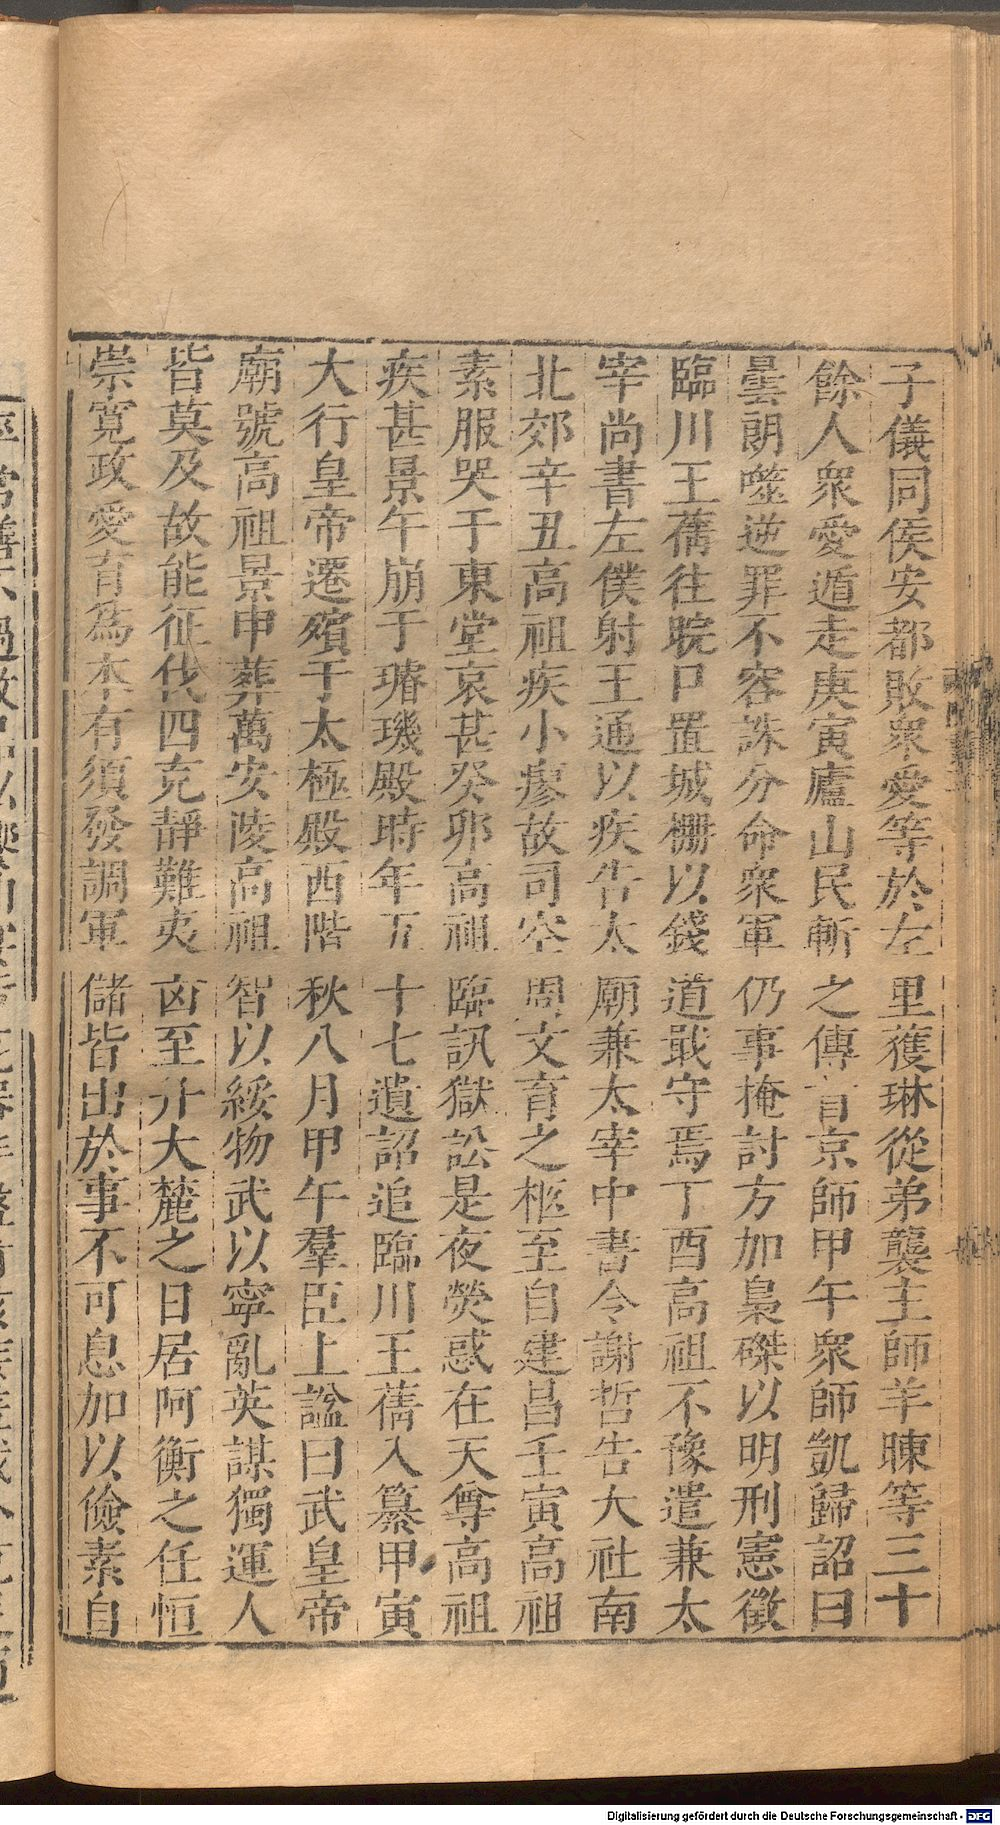 子儀同侯安都敗衆愛等於左里獲琳從弟襲主師羊暕等三十
餘人衆愛遁走庚寅廬山民斬之傳首京師甲午衆師凱歸詔曰
曇朗噬逆罪不容誅分命衆軍仍事掩討方加梟磔以明刑憲徵
臨川王蒨往晥口置城柵以錢道戢守焉丁酉高祖不豫遣兼太
宰尚書左僕射王通以疾告太廟兼太宰中書令謝哲告大社南
北郊辛丑高祖疾小瘳故司空周文育之柩至自建昌壬寅高祖
素服哭于東堂哀甚癸卯高祖臨訊獄訟是夜熒惑在天尊高祖
疾甚景午崩于璿璣殿時年五十七遺詔追臨川王蒨入纂甲寅
大行皇帝遷殯于太極殿西階秋八月甲午羣臣上諡曰武皇帝
廟號高祖景申葬萬安陵高祖智以綏物武以寧亂英謀獨運人
皆莫及故能征伐四克靜難夷凶至升大麓之日居阿衡之任恒
崇寬政愛育為本有須發調軍儲皆出於事不可息加以儉素自
Digitalisierung gefördert durch die Deutsche Forschungsgemeinschaft - DFG